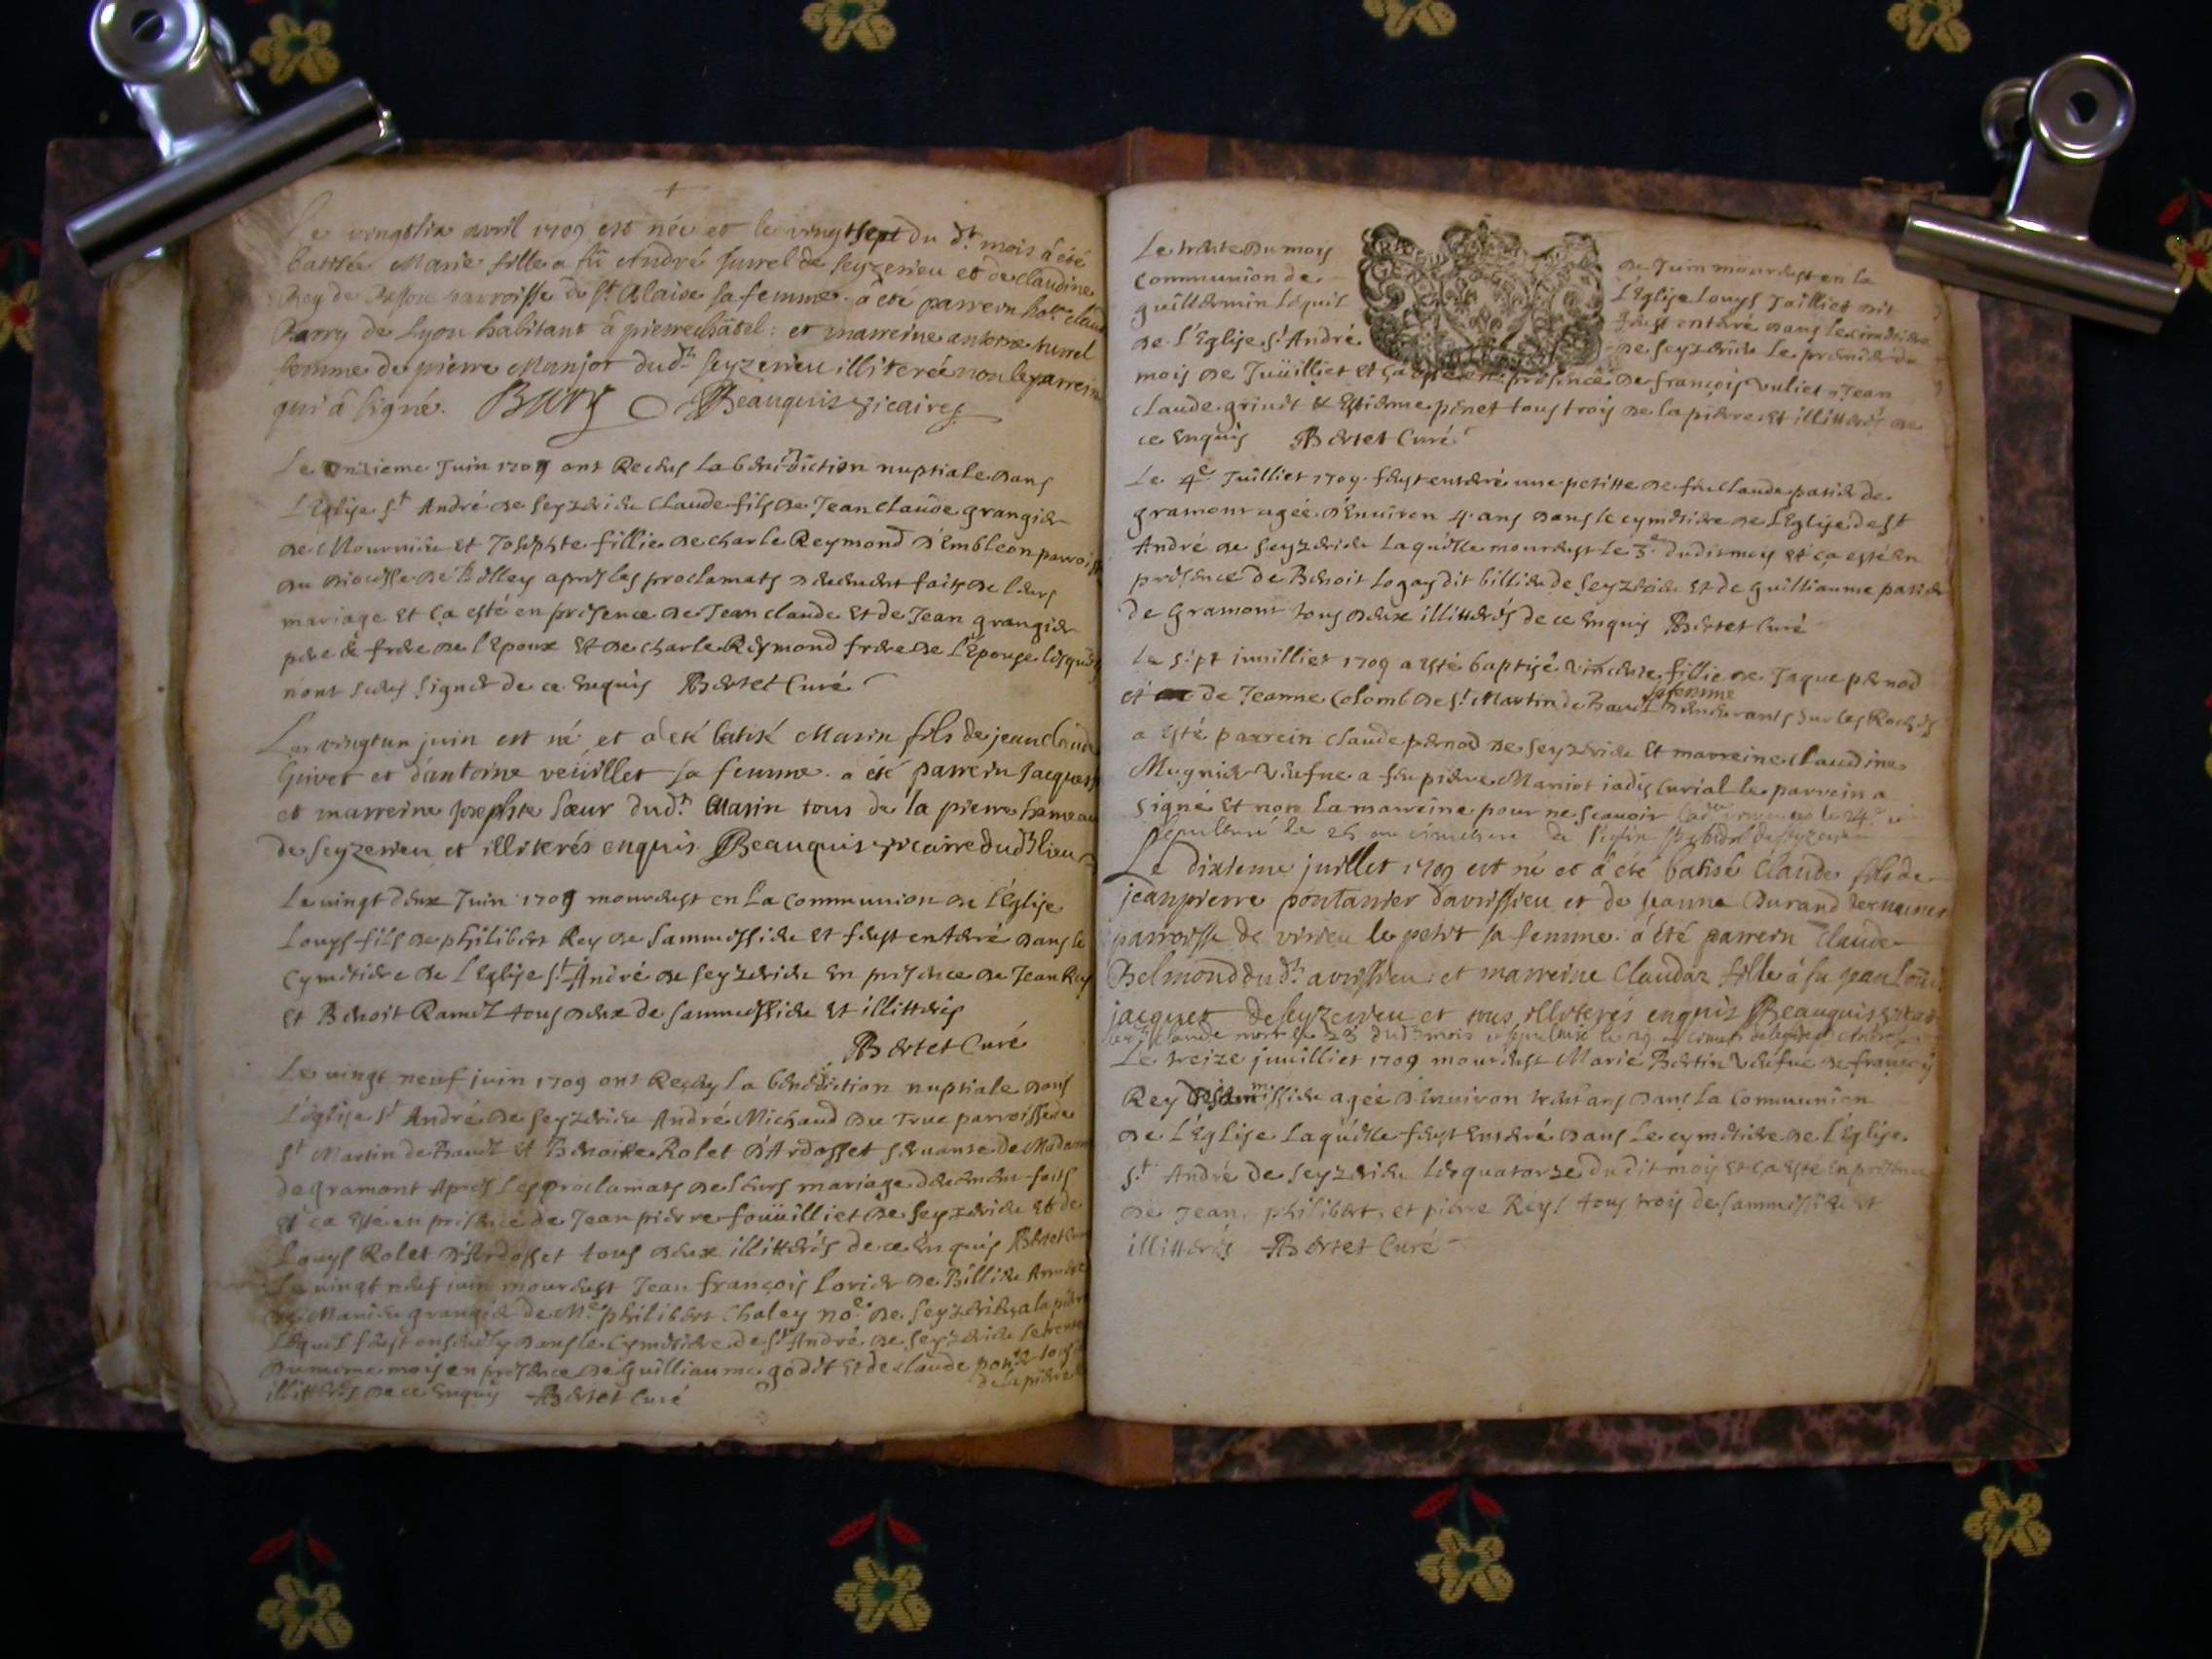 Le vingtsix avril 1709 est née et le vingtsept du dt mois a été
batisée Marie fille a fû André surrel de seyzerieu et de claudine
Rey de parroisse de st Blaise sa femme. a été parrein
Barry de Lyon habitant â pierrechâtel: et marreine antoine surrel
femme de pierre Manjot dudt seyzerieu illiterée non le parrein
qui â signé. Bary Beauquis vicaire
Le onzieme Juin 1709 ont Receus la benediction nuptiale dans
L'Eglise st André de seyzerieu claude fils de Jean claude grangier
de et Josephte fillie de charle Reymond d'Embleon parroisse
du diocesse de Belley apres les proclamats deuement faits de leurs
mariage et ça esté en presence de Jean claude et de Jean grangier
pere & frere de l'Epoux et de charle Reymond frere de l'Epouse lesquels
n'ont sceus signer de ce enquis Bertet Curé
Le vingtun juin est né et a été batisé Marin fils de jean claude
Guivet et d'antoine veüillet sa femme. a été parrein jacques
et marreine josephte sœur dudt Marin tous de la pierre hameau
de seyzerieu et illiterés enquis Beauquis vicaire dudt lieu
Le uingt deux Juin 1709 mourcust en La Communion de l'Eglise
Louys fils de philibert Rey de sammessieu et feust enterré dans le
Cymetiere de L'Eglise st André de seyzerieu en presence de Jean Rey
et Benoit Ramel tous deux de sammessieu et illitterés
Bertet Curé
Le uingt neuf juin 1709 ont Receus La benediction nuptiale dans
L'église st André de seyzerieu André Michaud du Truc parroisse de
st Martin de Bauel et Benoite Rolet d'Ardosset seruante de Madame
de gramont Apres Les proclamats de leurs mariage deuement faits
et ça esté en presence de Jean pierre foüilliet de seyzerieu et de
Louys Rolet d'Ardosset tous deux illitterés de ce enquis Bertet Curé
Le uingt neuf juin mourcust Jean françois Lorier de Billieu
grangier de Me philibert Chaley noe de seyzerieu a la pierre
Lequel feust enseuely dans le Cymetiere de st André de seyzerieu le trente
du meme mois en presence de Guilliaume godet et de claude tous
de la pierre
illitterés de ce enquis Bertet Curé
Le trente du mois de Juin mourcust en la
Communion de L'Eglise Louys Jailliet dit
guillermin Lequel feust enterré dans le cimetiere
de L'Eglise st André de seyzerieu Le premier du
mois de Juüilliet et ça esté en presence de françois Vuliet, Jean
claude grinet & Estienne penet tous trois de la pierre et illitterés de
ce enquis Bertet Curé
Le 4e Juilliet 1709 feust enterré une petitte de feu claude patier de
gramont agée d'Enuiron 4 ans dans le cymetiere de L'Eglise de st
André de seyzerieu laquelle mourcust le 3e dudit mois et ça esté en
presence de Benoit Logay dit billieu de seyzerieu et de guilliaume patier
de Gramont tous deux illitterés de ce enquis Bertet Curé
Le sept iuuilliet 1709 a esté baptisé fillie de Jaque pernod
et de Jeanne Colomb de st Martin de Bauel sa femme demeurants sur les Roches
a esté parrein claude pernod de seyzerieu et marreine claudine
Mugnier Veufue a feu pierre Maniot iadis curial le parrein a
signé et non la marreine pour ne scauoir le 24e
sepulturé le 25 au cimetiere de l'eglise st André de seyzerieu
Le dixieme juillet 1709 est né et a été batisé Claude fils de
jeanpierre pontanier d'avrissieu et de jeanne Durand
parroisse de virieu le petit sa femme. a été parrein Claude
Belmond dudt avrissieu: et marreine Claudaz fille â fu jean Loüis
jacquet de seyzerieu et tous illiterés enquis Beauquis vicaire
claude mort le 28 dudt mois et sepulturé le 29 au cimet. de l'eglise st André
Le treize juuilliet 1709 mourcust Marie Bertin Veufue de françois
Rey de sammissieu agée d'Enuiron trent ans dans La Communion
de L'Eglise Laquelle feust enterré dans Le cymetiere de L'Eglise
st André de seyzerieu Le quatorze du dit mois et ça esté en presence
de Jean, philibert, et pierre Rey! tous trois de sammissieu et
illitterés Bertet Curé